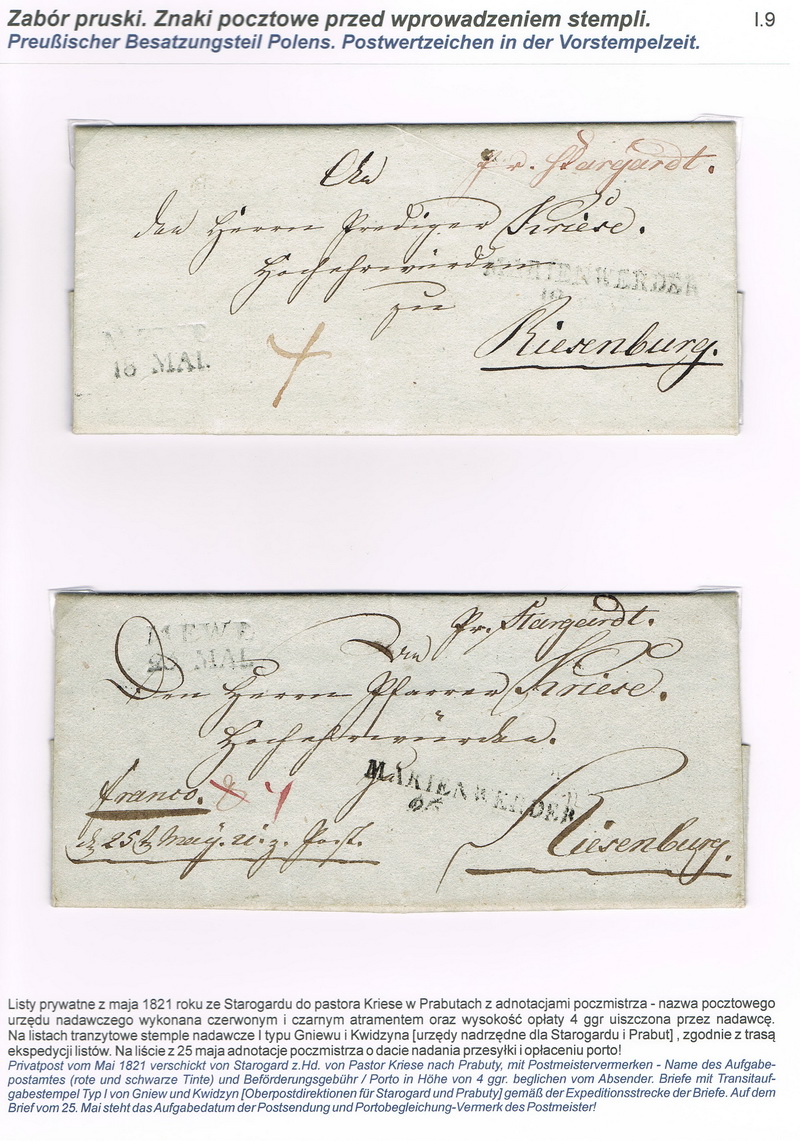 Zabór pruski. Znaki pocztowe przed wprowadzeniem stempli.
I.9
Preußischer Besatzungsteil Polens. Postwertzeichen in der Vorstempelzeit.
An
Pr. Stargardt.
den Herrn Prediger Kriese.
Hochehrwürden
MARIENWERDER
zu
18 MAI.
4
Riesenburg.
MEWE
MAI.
Pr. Stargardt.
An
Den Herrn Pfarrer Kriese.
Hochehrwürden.
MARIENWERDER
franco. 4
Riesenburg.
25 May. Post.
Listy prywatne z maja 1821 roku ze Starogardu do pastora Kriese w Prabutach z adnotacjami poczmistrza - nazwa pocztowego
urzędu nadawczego wykonana czerwonym i czarnym atramentem oraz wysokość opłaty 4 ggr uiszczona przez nadawcę.
Na listach tranzytowe stemple nadawcze I typu Gniewu i Kwidzyna [urzędy nadrzędne dla Starogardu i Prabut] , zgodnie z trasą
ekspedycji listów. Na liście z 25 maja adnotacje poczmistrza o dacie nadania przesyłki i opłaceniu porto!
Privatpost vom Mai 1821 verschickt von Starogard z.Hd. von Pastor Kriese nach Prabuty, mit Postmeistervermerken - Name des Aufgabe-
postamtes (rote und schwarze Tinte) und Beförderungsgebühr / Porto in Höhe von 4 ggr. beglichen vom Absender. Briefe mit Transitauf-
gabestempel Typ I von Gniew und Kwidzyn [Oberpostdirektionen für Starogard und Prabuty] gemäß der Expeditionsstrecke der Briefe. Auf dem
Brief vom 25. Mai steht das Aufgabedatum der Postsendung und Portobegleichung-Vermerk des Postmeister!